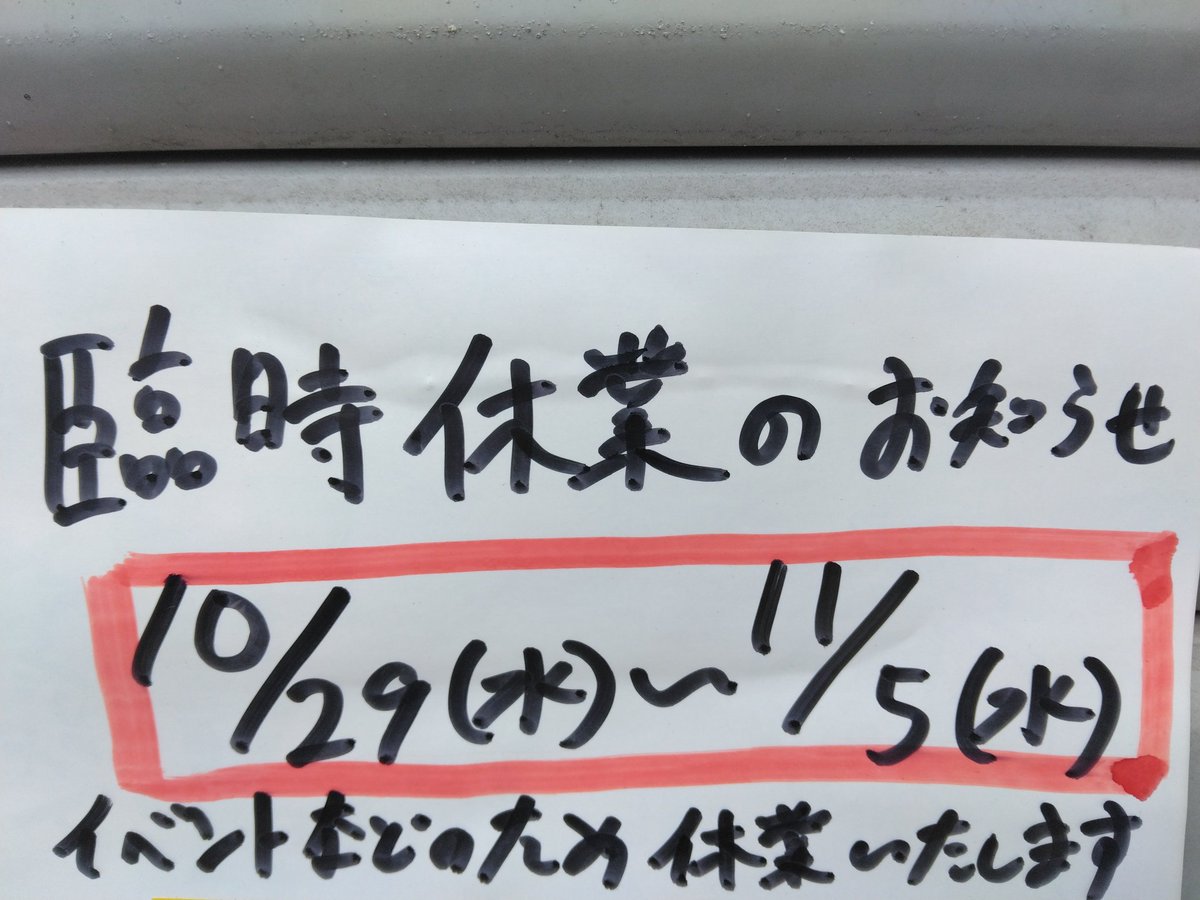 臨時休業のお知らせ
10/29(水)〜11/5(水)
イベントなどのため休業いたします